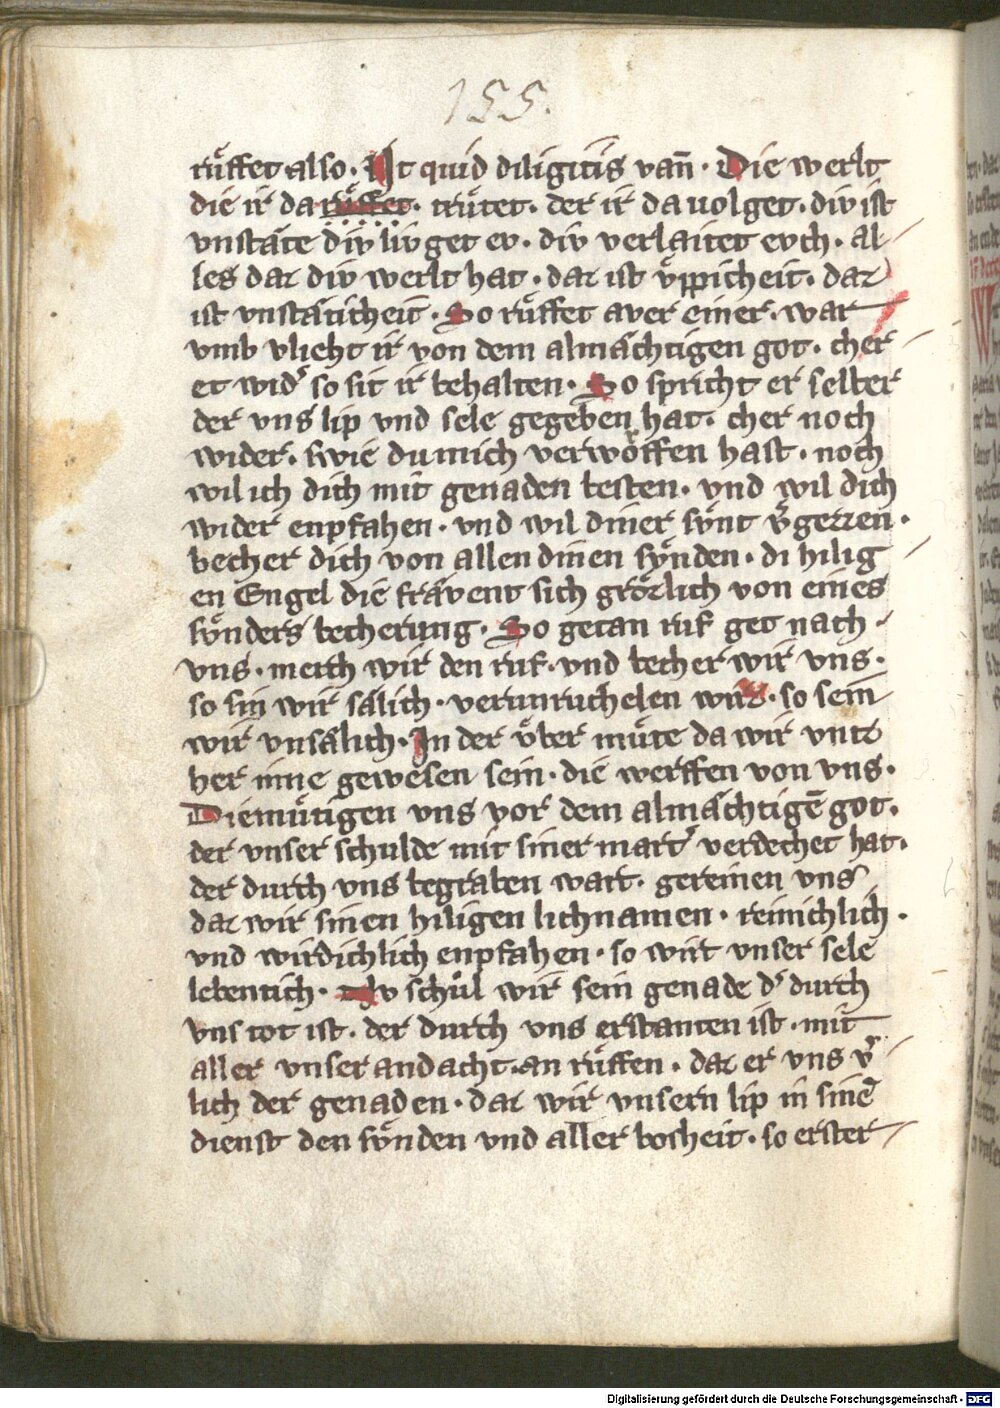 155.
ruͤffet also. Ut quid diligitis van̄. Die werlt
die ir da ruͤffet. truͤtet. der ir da uolget. div ist
vnstaͤte div livget ev. div verlaitet evch. al
les daz div werlt hat. daz ist vͤppicheit. daz
ist vnstaͤticheit. So ruͤffet aver einer. war
vmb vlieht ir von dem almaͤchtigen got. cher
et wid͛ so sit ir behalten. So spricht er selber
der vns lip vnd sele gegeben hat. cher noch
wider. swie du mich verwoͤffen hast. noch
wil ich dich mit genaden besten. vnd wil dich
wider enpfahen. vnd wil diner svͤnt v͛gezzen.
becher dich von allen dinen svͤnden. di hilig
en Engel die fraͤvent sich groͤzlich von eines
svͤnders becherung. So getan ruf get nach
vns. merch wir den ruf. vnd becher wir vns.
so sin wir saͤlich. verunruchelen wirz. so sein
wir vnsaͤlich. In der vͤber muͤte da wir vntz
her inne gewesen sein. die werffen von vns.
Diemuͤtigen vns vor dem almaͤchtigē got.
der vnser schulde mit siner mart͛ verdechet hat.
der durch vns begraben wart. gereinen vns
daz wir sinen hiligen lichnamen. reinichlich.
vnd wirdichlich enpfahen. so wirt vnser sele
lebentich. Nv schuͤl wir sein genade d͛ durch
vns tot ist. der durch vns erstanten ist. mit
aller vnser andacht. an ruͤffen. daz er vns v͛
lich der genaden. daz wir vnsern lip in sinē
dienst den svͤnden vnd aller bosheit. so erster
Digitalisierung gefördert durch die Deutsche Forschungsgemeinschaft - DFG